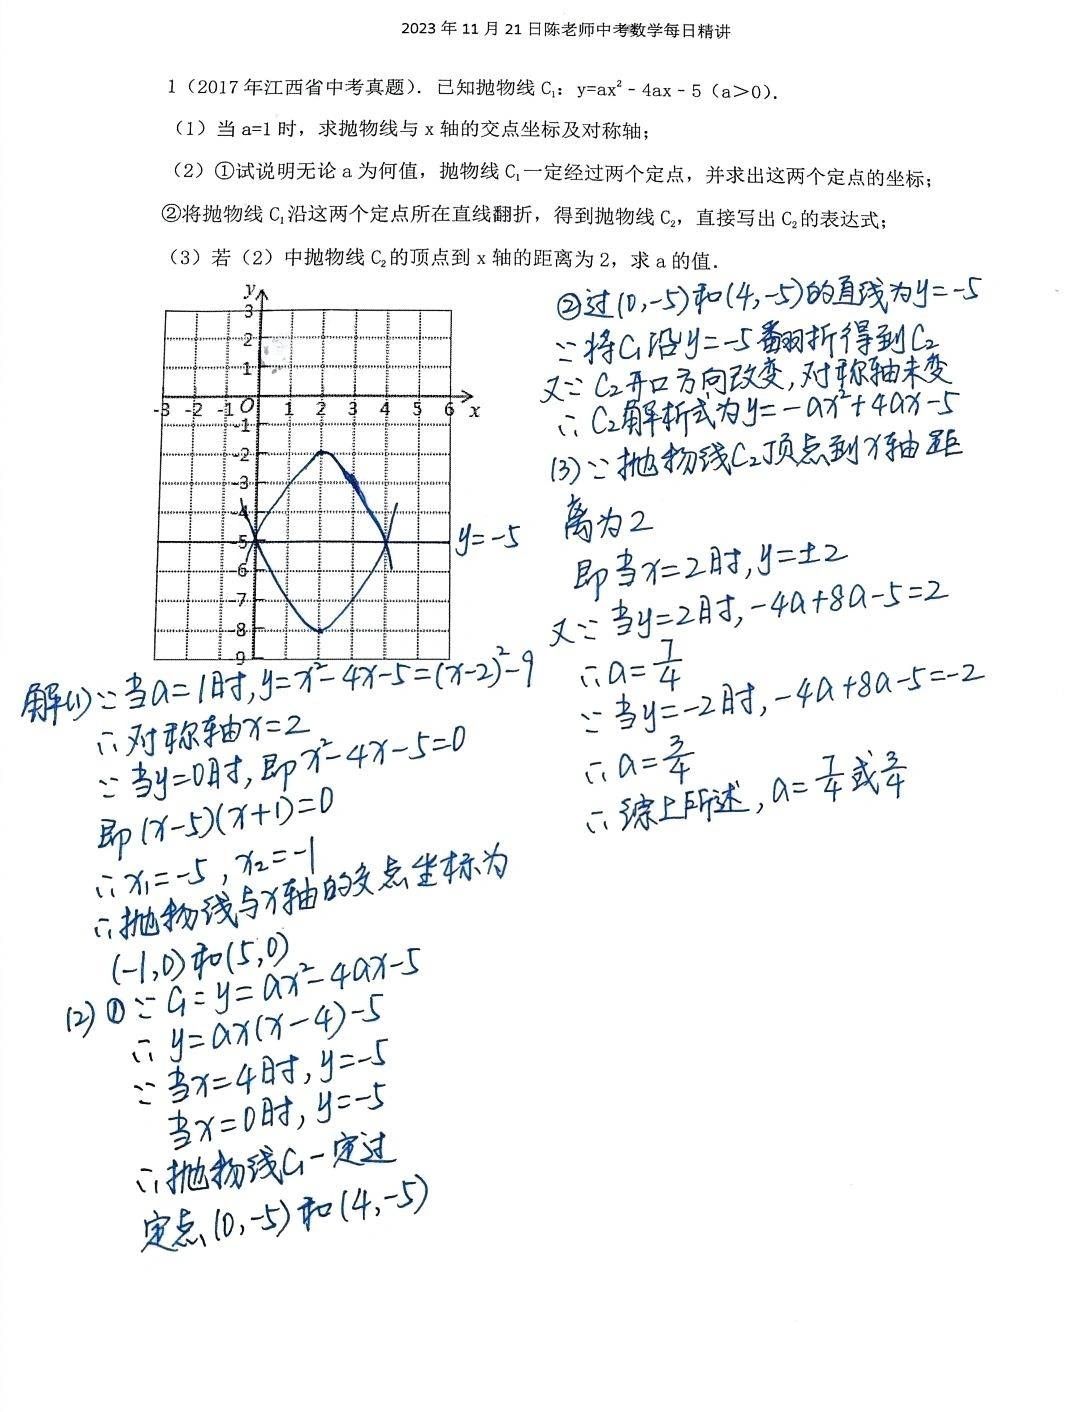 2023 年 11 月 21 日陈老师中考数学每日精讲
1（2017 年江西省中考真题）．已知抛物线 C₁：y=ax²﹣4ax﹣5（a＞0）．
（1）当 a=1 时，求抛物线与 x 轴的交点坐标及对称轴；
（2）①试说明无论 a 为何值，抛物线 C₁一定经过两个定点，并求出这两个定点的坐标；
②将抛物线 C₁沿这两个定点所在直线翻折，得到抛物线 C₂，直接写出 C₂的表达式；
（3）若（2）中抛物线 C₂的顶点到 x 轴的距离为 2，求 a 的值．
y
3
2
1
-3 -2 -1 O 1 2 3 4 5 6 x
-1
-2
-3
-4
-5
-6
-7
-8
-9
y=-5
解(1)∵当a=1时,y=x²-4x-5=(x-2)²-9
∴对称轴x=2
∵当y=0时,即x²-4x-5=0
即(x-5)(x+1)=0
∴x₁=-5,x₂=-1
∴抛物线与x轴的交点坐标为
(-1,0)和(5,0)
(2)①∵C₁=y=ax²-4ax-5
∴y=ax(x-4)-5
∵当x=4时,y=-5
当x=0时,y=-5
∴抛物线C₁一定过
定点(0,-5)和(4,-5)
②过(0,-5)和(4,-5)的直线为y=-5
∵将C₁沿y=-5翻折得到C₂
又∵C₂开口方向改变,对称轴未变
∴C₂解析式为y=-ax²+4ax-5
(3)∵抛物线C₂顶点到x轴距
离为2
即当x=2时,y=±2
又∵当y=2时,-4a+8a-5=2
∴a=7/4
∵当y=-2时,-4a+8a-5=-2
∴a=3/4
∴综上所述,a=7/4或3/4